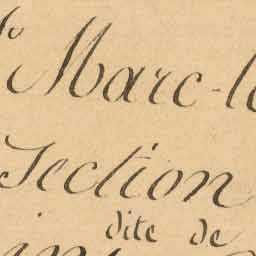 Marc-le
Section
dite de